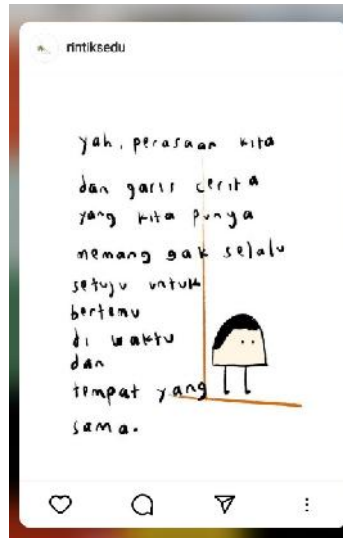 rintiksedu
yah, perasaan kita
dan garis cerita
yang kita punya
memang gak selalu
setuju untuk
bertemu
di waktu
dan
tempat yang
sama.